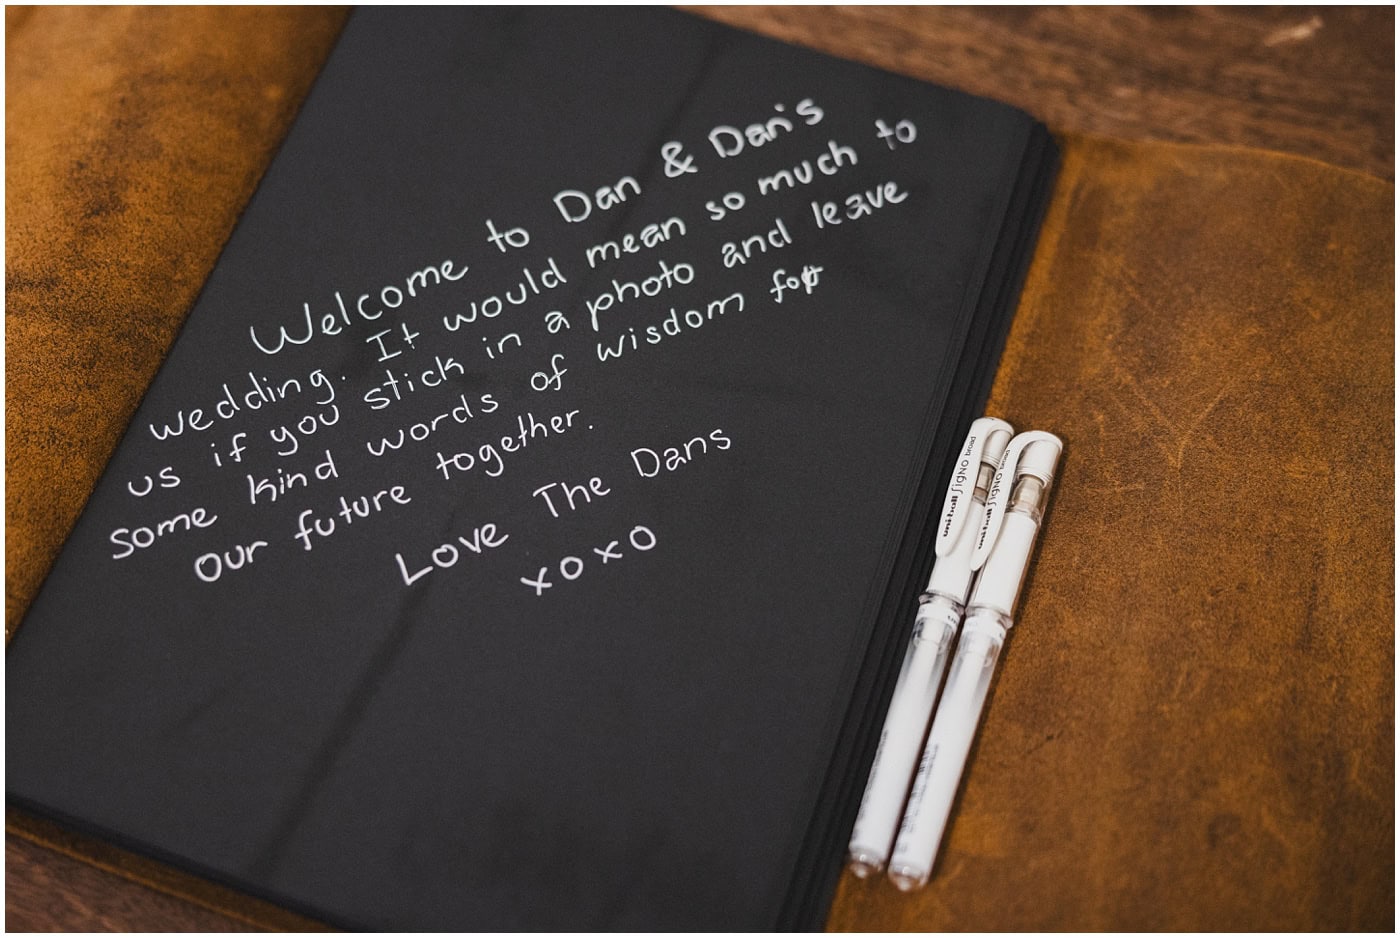 Welcome to Dan & Dan's
wedding. It would mean so much to
us if you stick in a photo and leave
some kind words of wisdom for
our future together.
Love The Dans
xoxo
uni-ball SigNO broad
uni-ball SigNO broad